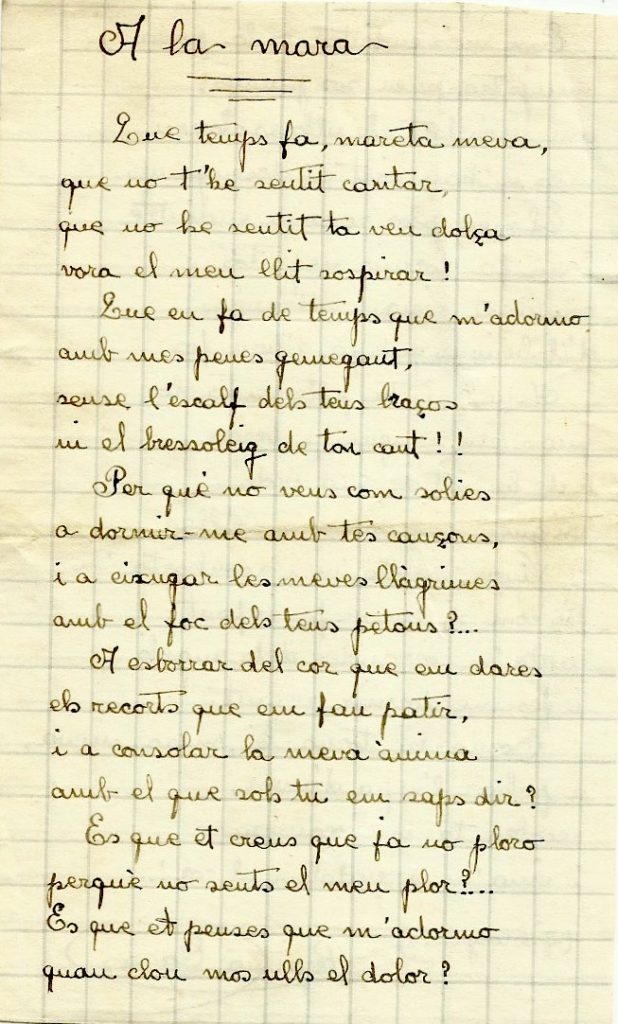 A la mara
Que temps fa, mareta meva,
que no t'he sentit cantar,
que no he sentit ta veu dolça
vora el meu llit sospirar!
Que en fa de temps que m'adormo
amb mes penes gemegant,
sense l'éscalf dels teus braços
ni el bressoleig de ton cant!!
Per què no vens com solies
a dormir-me amb tes cançons,
i a eixugar les meves llàgrimes
amb el foc dels teus petons?...
A esborrar del cor que em dares
els recorts que em fan patir,
i a consolar la meva ànima
amb el que sols tu em saps dir?
Es que et creus que ja no ploro
perquè no sents el meu plor?...
Es que et penses que m'adormo
quan clou mos ulls el dolor?